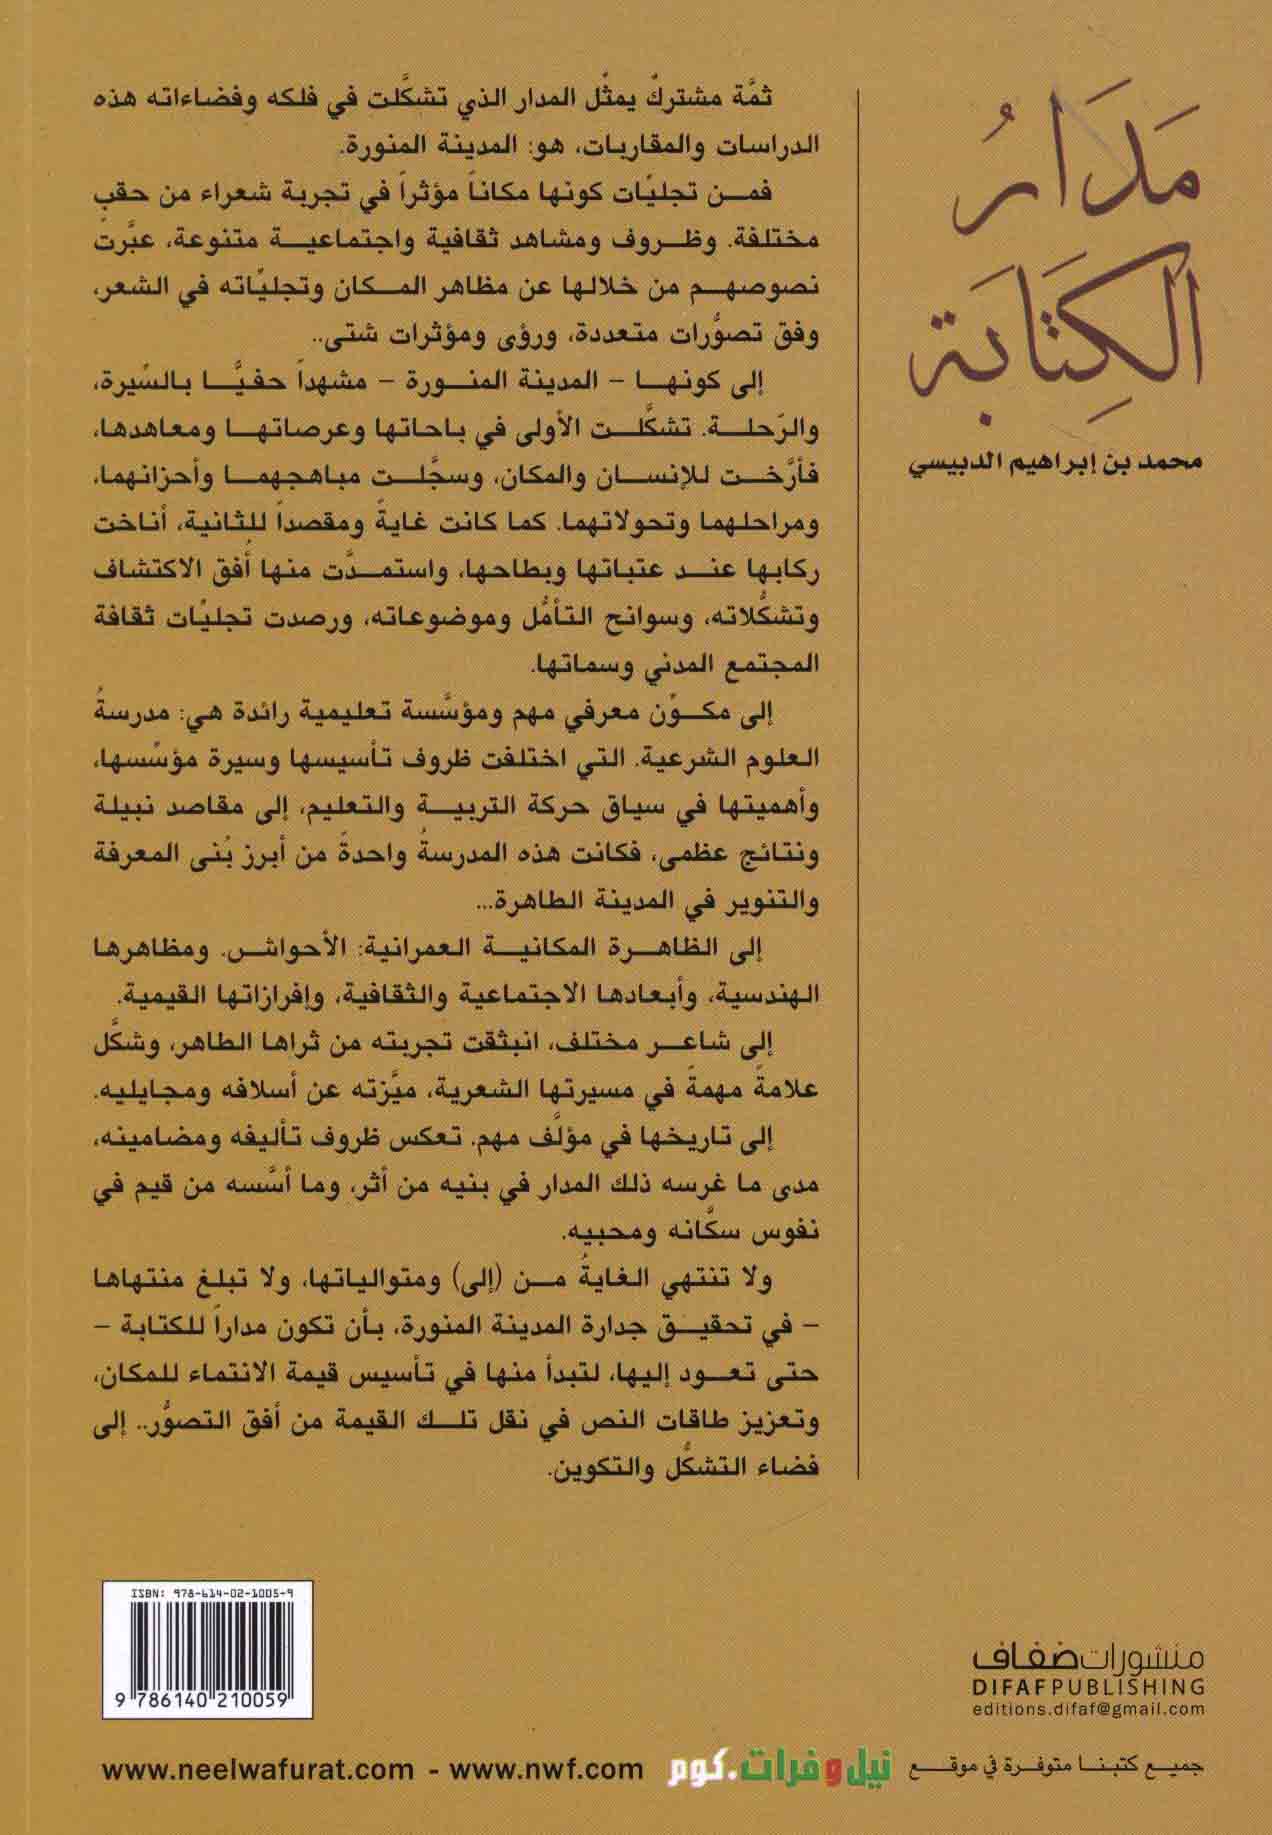 مَدَارُ
الكِتَابَة
محمد بن إبراهيم الدبيسي
ثمَّة مشتركٌ يمثل المدار الذي تشكَّلت في فلكه وفضاءاته هذه
الدراسات والمقاربات، هو: المدينة المنورة.
فمن تجليّات كونها مكاناً مؤثراً في تجربة شعراء من حقبٍ
مختلفة. وظروف ومشاهد ثقافية واجتماعية متنوعة، عبَّرت
نصوصهم من خلالها عن مظاهر المكان وتجليّاته في الشعر،
وفق تصوُّرات متعددة، ورؤى ومؤثرات شتى..
إلى كونها – المدينة المنورة – مشهداً حفيَّا بالسِّيرة،
والرّحلة. تشكَّلت الأولى في باحاتها وعرصاتها ومعاهدها،
فأرَّخت للإنسان والمكان، وسجَّلت مباهجهما وأحزانهما،
ومراحلهما وتحولاتهما. كما كانت غايةً ومقصداً للثانية، أناخت
ركابها عند عتباتها وبطاحها، واستمدَّت منها أُفق الاكتشاف
وتشكُّلاته، وسوانح التأمُّل وموضوعاته، ورصدت تجليّات ثقافة
المجتمع المدني وسماتها.
إلى مكوِّن معرفي مهم ومؤسَّسة تعليمية رائدة هي: مدرسةُ
العلوم الشرعية. التي اختلفت ظروف تأسيسها وسيرة مؤسِّسها،
وأهميتها في سياق حركة التربية والتعليم، إلى مقاصد نبيلة
ونتائج عظمى، فكانت هذه المدرسةُ واحدةً من أبرز بُنى المعرفة
والتنوير في المدينة الطاهرة...
إلى الظاهرة المكانية العمرانية: الأحواش. ومظاهرها
الهندسية، وأبعادها الاجتماعية والثقافية، وإفرازاتها القيمية.
إلى شاعر مختلف، انبثقت تجربته من ثراها الطاهر، وشكَّل
علامةً مهمةً في مسيرتها الشعرية، ميَّزته عن أسلافه ومجايليه.
إلى تاريخها في مؤلَّف مهم. تعكس ظروف تأليفه ومضامينه،
مدى ما غرسه ذلك المدار في بنيه من أثر، وما أسَّسه من قيم في
نفوس سكَّانه ومحبيه.
ولا تنتهي الغايةُ من (إلى) ومتوالياتها، ولا تبلغ منتهاها
– في تحقيق جدارة المدينة المنورة، بأن تكون مداراً للكتابة –
حتى تعود إليها، لتبدأ منها في تأسيس قيمة الانتماء للمكان،
وتعزيز طاقات النص في نقل تلك القيمة من أفق التصوُّر.. إلى
فضاء التشكُّل والتكوين.
ISBN: 978-614-02-1005-9
9 786140 210059
منشورات ضفاف
DIFAFPUBLISHING
editions.difaf@gmail.com
جميع كتبنا متوفرة في موقع نيل وفرات.كوم www.neelwafurat.com - www.nwf.com